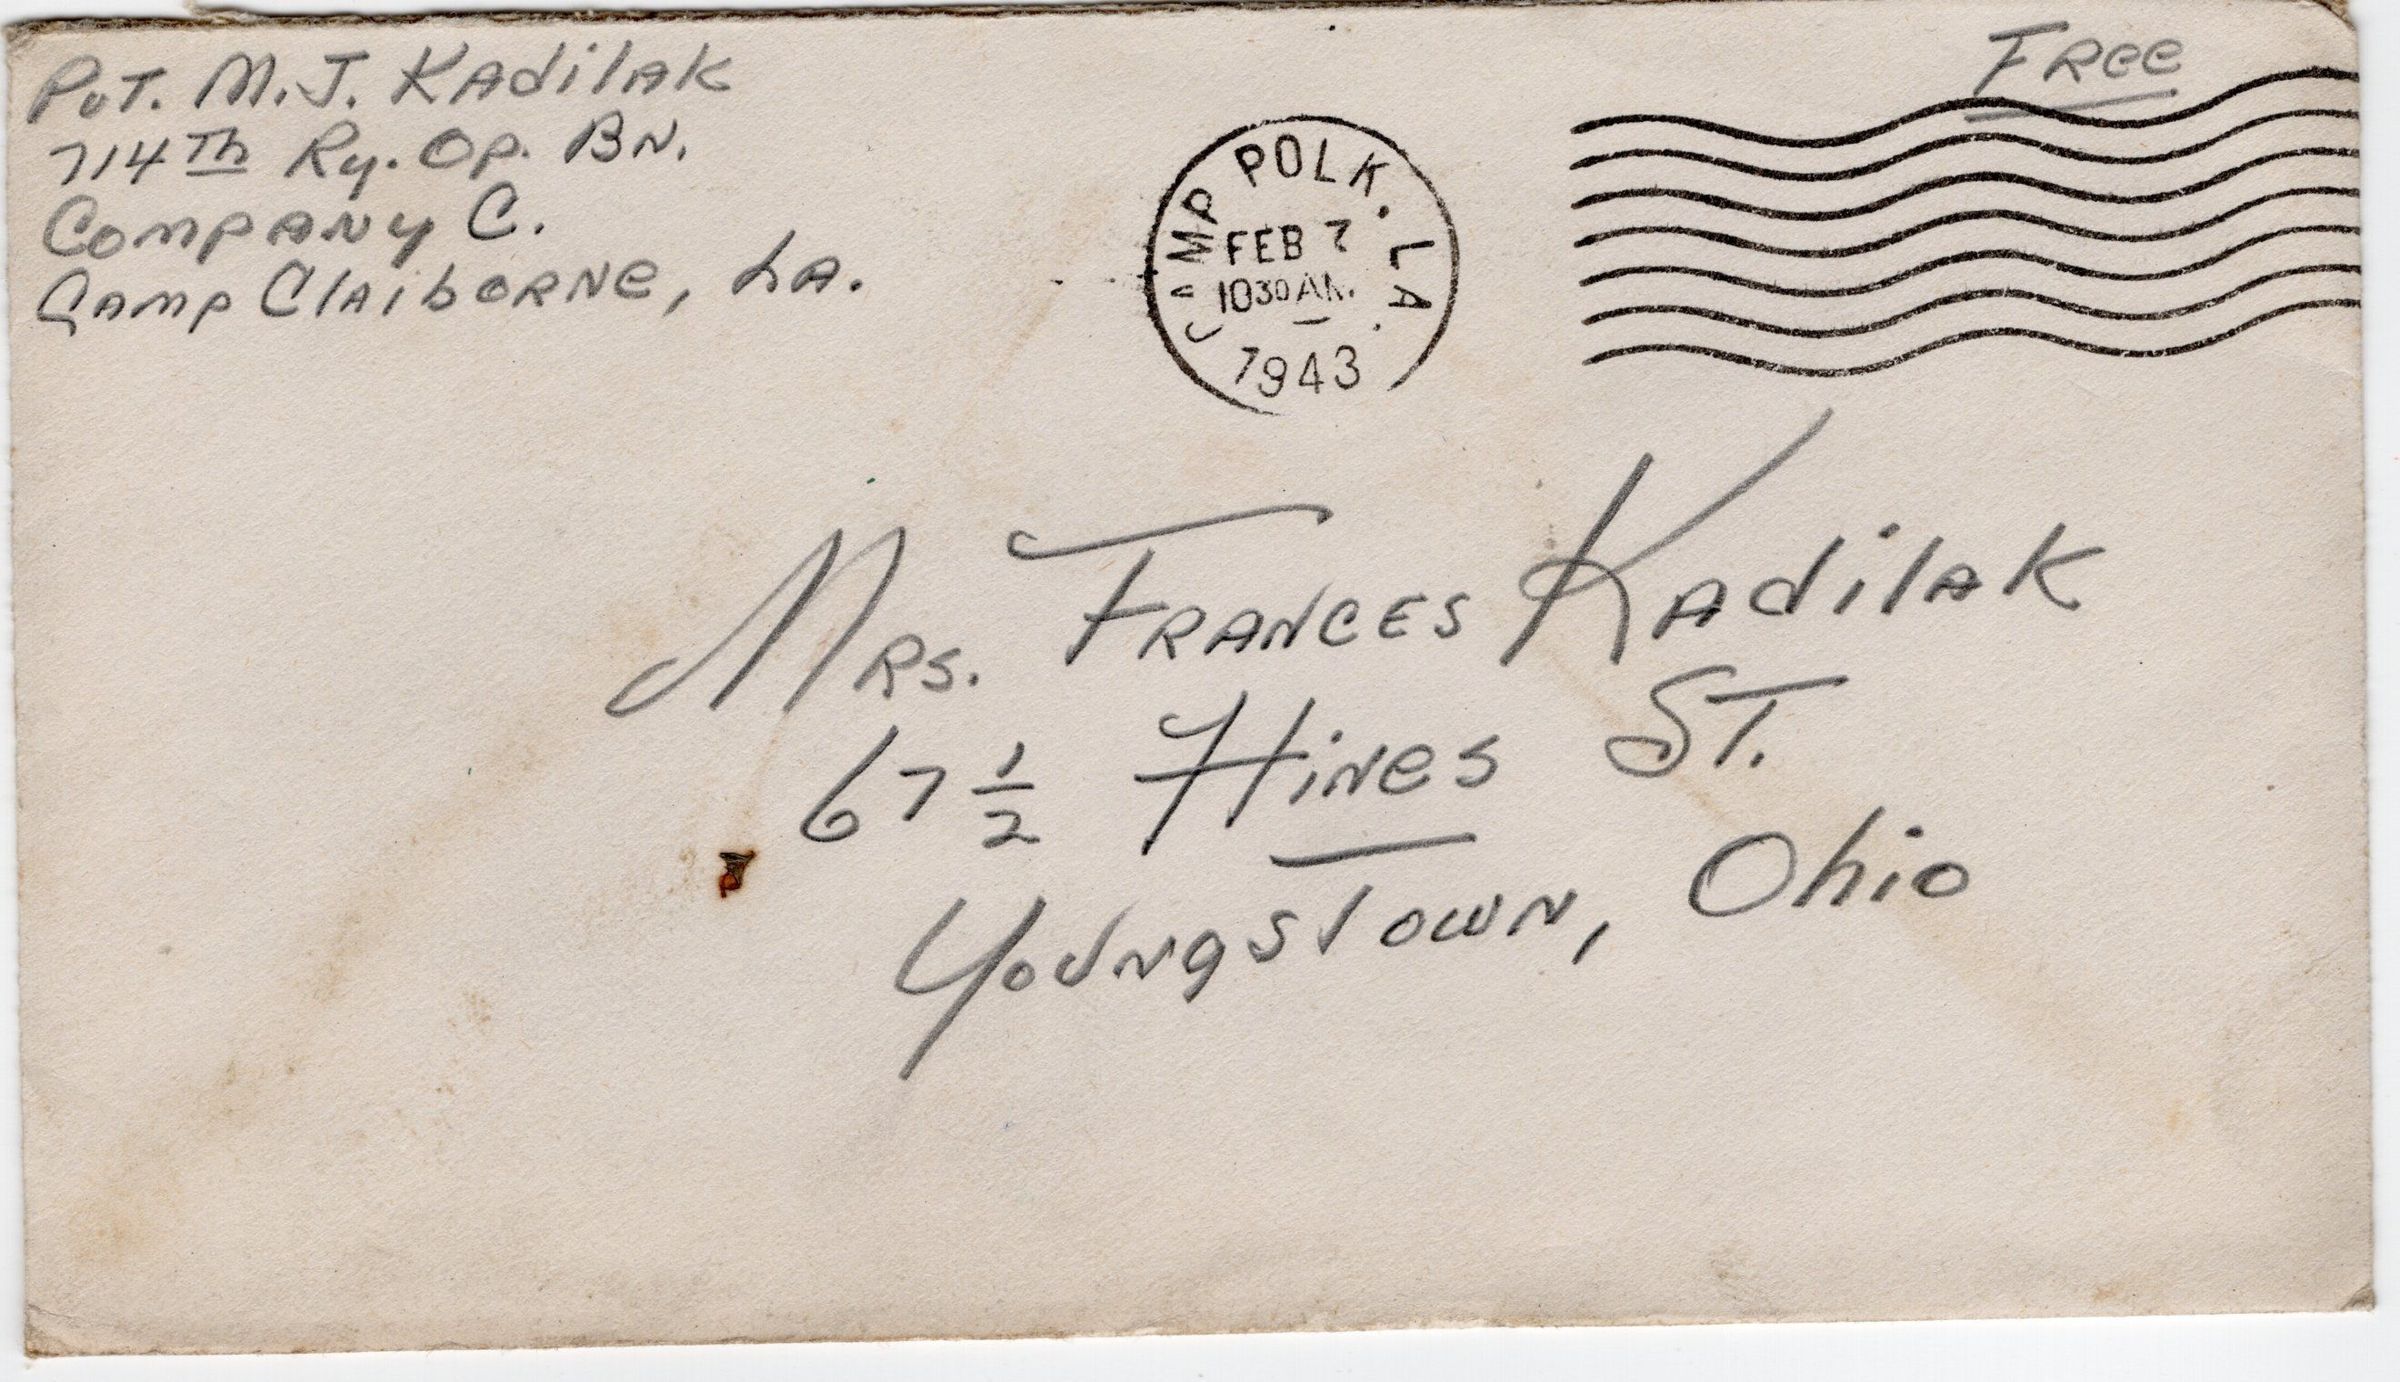 Pvt. M. J. Kadilak
714th Ry. Op. Bn.
Company C.
Camp Claiborne, La.
Free
CAMP POLK. LA.
FEB 7
10 30 AM.
1943
Mrs. Frances Kadilak
67 1/2 Hines St.
Youngstown, Ohio